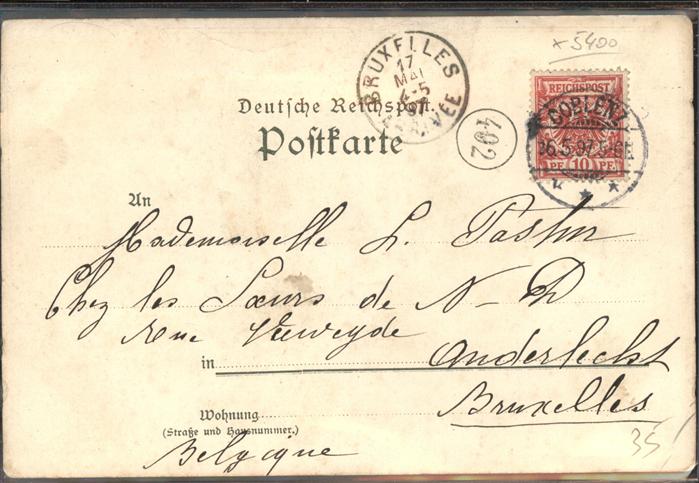 ×5400
BRUXELLES
17
MAI
4-5
97
ARRIVÉE
402
REICHSPOST
10
PF. 10 PF.
COBLENZ
5.97.5-6
Deutsche Reichspost.
Postkarte
An
Mademoiselle L.
Chez les Sœurs de N-D
rue Veeweyde
in Anderlecht
Bruxelles
Wohnung
(Straße und Hausnummer.)
Belgique
35